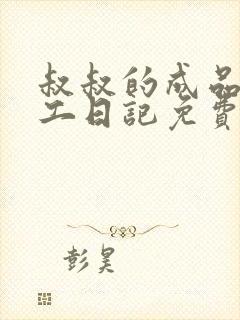 叔叔的成品
工日记免費
彭昊